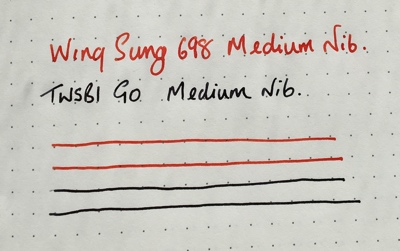 Wing Sung 698 Medium Nib.
TWSBI GO Medium Nib.